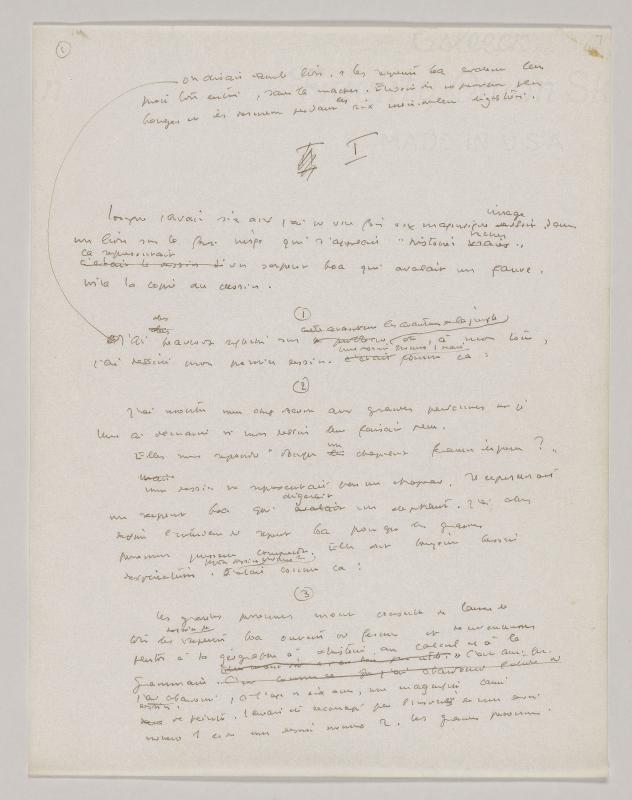 1
on disait dans le livre : les serpents boa avalent leur
proie tout entière, sans la mâcher. Ensuite ils ne peuvent plus
bouger et ils dorment pendant les six mois de leur digestion.
I
MADE IN U.S.A
image
Lorsque j'avais six ans j'ai vu une fois une magnifique dans
un livre sur la forêt vierge qui s'appelait "histoires vécues".
ça représentait
c'était le dessin d'un serpent boa qui avalait un fauve.
voilà la copie du dessin.
1
des
aventures de la jungle
j'ai beaucoup réfléchi sur et, à mon tour,
mon dessin numéro 1 était
j'ai dessiné mon premier dessin. c'était comme ça :
2
J'ai montré mon aux grandes personnes et j'ai
demandé si mon dessin leur faisait peur.
Elles m'ont répondu "pourquoi un chapeau ferait-il peur ?"
mon dessin ne représentait pas un chapeau. Il représentait
digérait
un serpent boa qui avalait un éléphant. J'ai alors
dessiné l'intérieur du serpent boa pour que les grandes
personnes puissent comprendre. Elles ont toujours besoin
mon dessin numéro 2
d'explications. C'était comme ça :
3
les grandes personnes m'ont conseillé de laisser de
dessins de
côté les serpents boa ouverts ou fermés et de
plutôt à la géographie, à l'histoire, au calcul et à la
grammaire. C'est ainsi que
j'ai abandonné, à l'âge de six ans, une magnifique carrière
de peintre. J'avais été découragé par l'insuccès de mon dessin
numéro 1 et de mon dessin numéro 2. Les grandes personnes